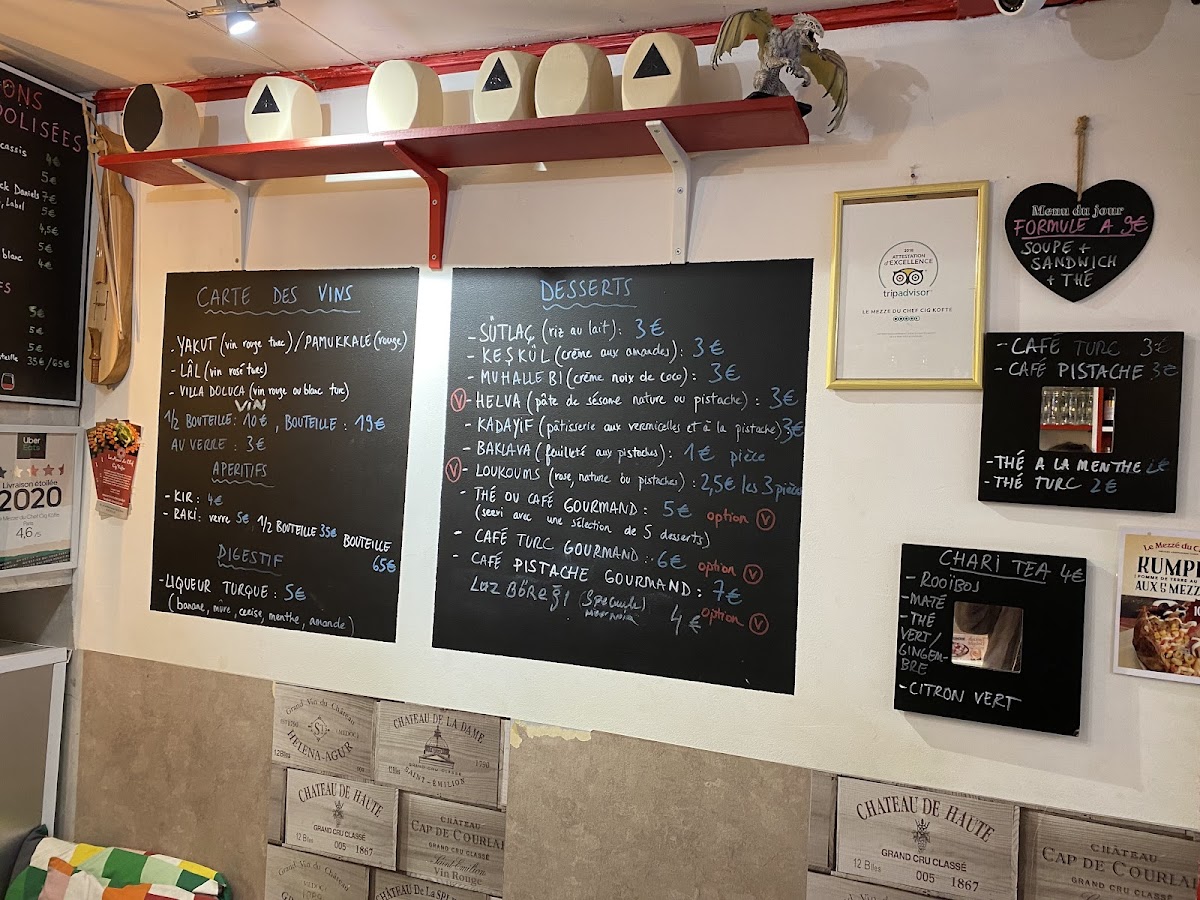 ONS
OLISÉES
cassis 4€
5€
ck Daniels 7€
Label 5€
4,5€
5€
blanc 4€
FS
5€
5€
5€
teille 35€/65€
Uber
Eats
Livraison étoilée
2020
Le Mezzé du Chef Cig Kofte
Paris
4,6/5
CARTE DES VINS
- YAKUT (vin rouge turc) / PAMUKKALE (rouge)
- LÂL (vin rosé turc)
- VILLA DOLUCA (vin rouge ou blanc turc)
VIN
1/2 BOUTEILLE: 10€, BOUTEILLE: 19€
AU VERRE : 3€
APERITIFS
- KIR: 4€
- RAKI: verre 5€ 1/2 BOUTEILLE 35€ BOUTEILLE
65€
DIGESTIF
- LIQUEUR TURQUE: 5€
(banane, mûre, cerise, menthe, amande)
DESSERTS
- SÜTLAÇ (riz au lait): 3€
- KEŞKÜL (crème aux amandes): 3€
- MUHALLEBI (crème noix de coco): 3€
V - HELVA (pâte de sésame nature ou pistache): 3€
- KADAYIF (pâtisserie aux vermicelles et à la pistache) 3€
- BAKLAVA (feuilleté aux pistaches): 1€ pièce
V - LOUKOUMS (rose nature ou pistaches): 2,5€ les 3 pièces
- THÉ OU CAFÉ GOURMAND: 5€ option V
(servi avec une sélection de 5 desserts)
- CAFÉ TURC GOURMAND: 6€ option V
- CAFÉ PISTACHE GOURMAND: 7€
Laz BÖREĞİ 4€ option V
2018
ATTESTATION
d'EXCELLENCE
tripadvisor
LE MEZZE DU CHEF CIG KOFTE
Menu du jour
FORMULE A 9€
SOUPE +
SANDWICH
+ THÉ
- CAFÉ TURC 3€
- CAFÉ PISTACHE 3€
- THÉ A LA MENTHE 2€
- THÉ TURC 2€
CHARI TEA 4€
- ROOIBOS
- MATÉ
- THÉ
VERT/
GINGEM-
BRE
- CITRON VERT
Le Mezzé du C
KUMPI
POMME DE TERRE AU
AUX 5 MEZZ
Grand Vin du Château
1790
(MEDOC)
HELENA-AGUR
12Btles
005
CHATEAU DE LA DAME
GRAND CRU CLASSÉ
1790
SAINT-ÉMILION
CHATEAU DE HAUTE
GRAND CRU CLASSÉ
12 Btles 005 1867
CHÂTEAU
CAP DE COURLAI
GRAND CRU CLASSÉ
Saint-Émilion
Vin Rouge
Grand Vin du Château
CHATEAU DE LA SPL
CHATEAU DE HAUTE
GRAND CRU CLASSÉ
12 Btles 005 1867
CHÂTEAU
CAP DE COURLAI
GRAND CRU CLASSÉ